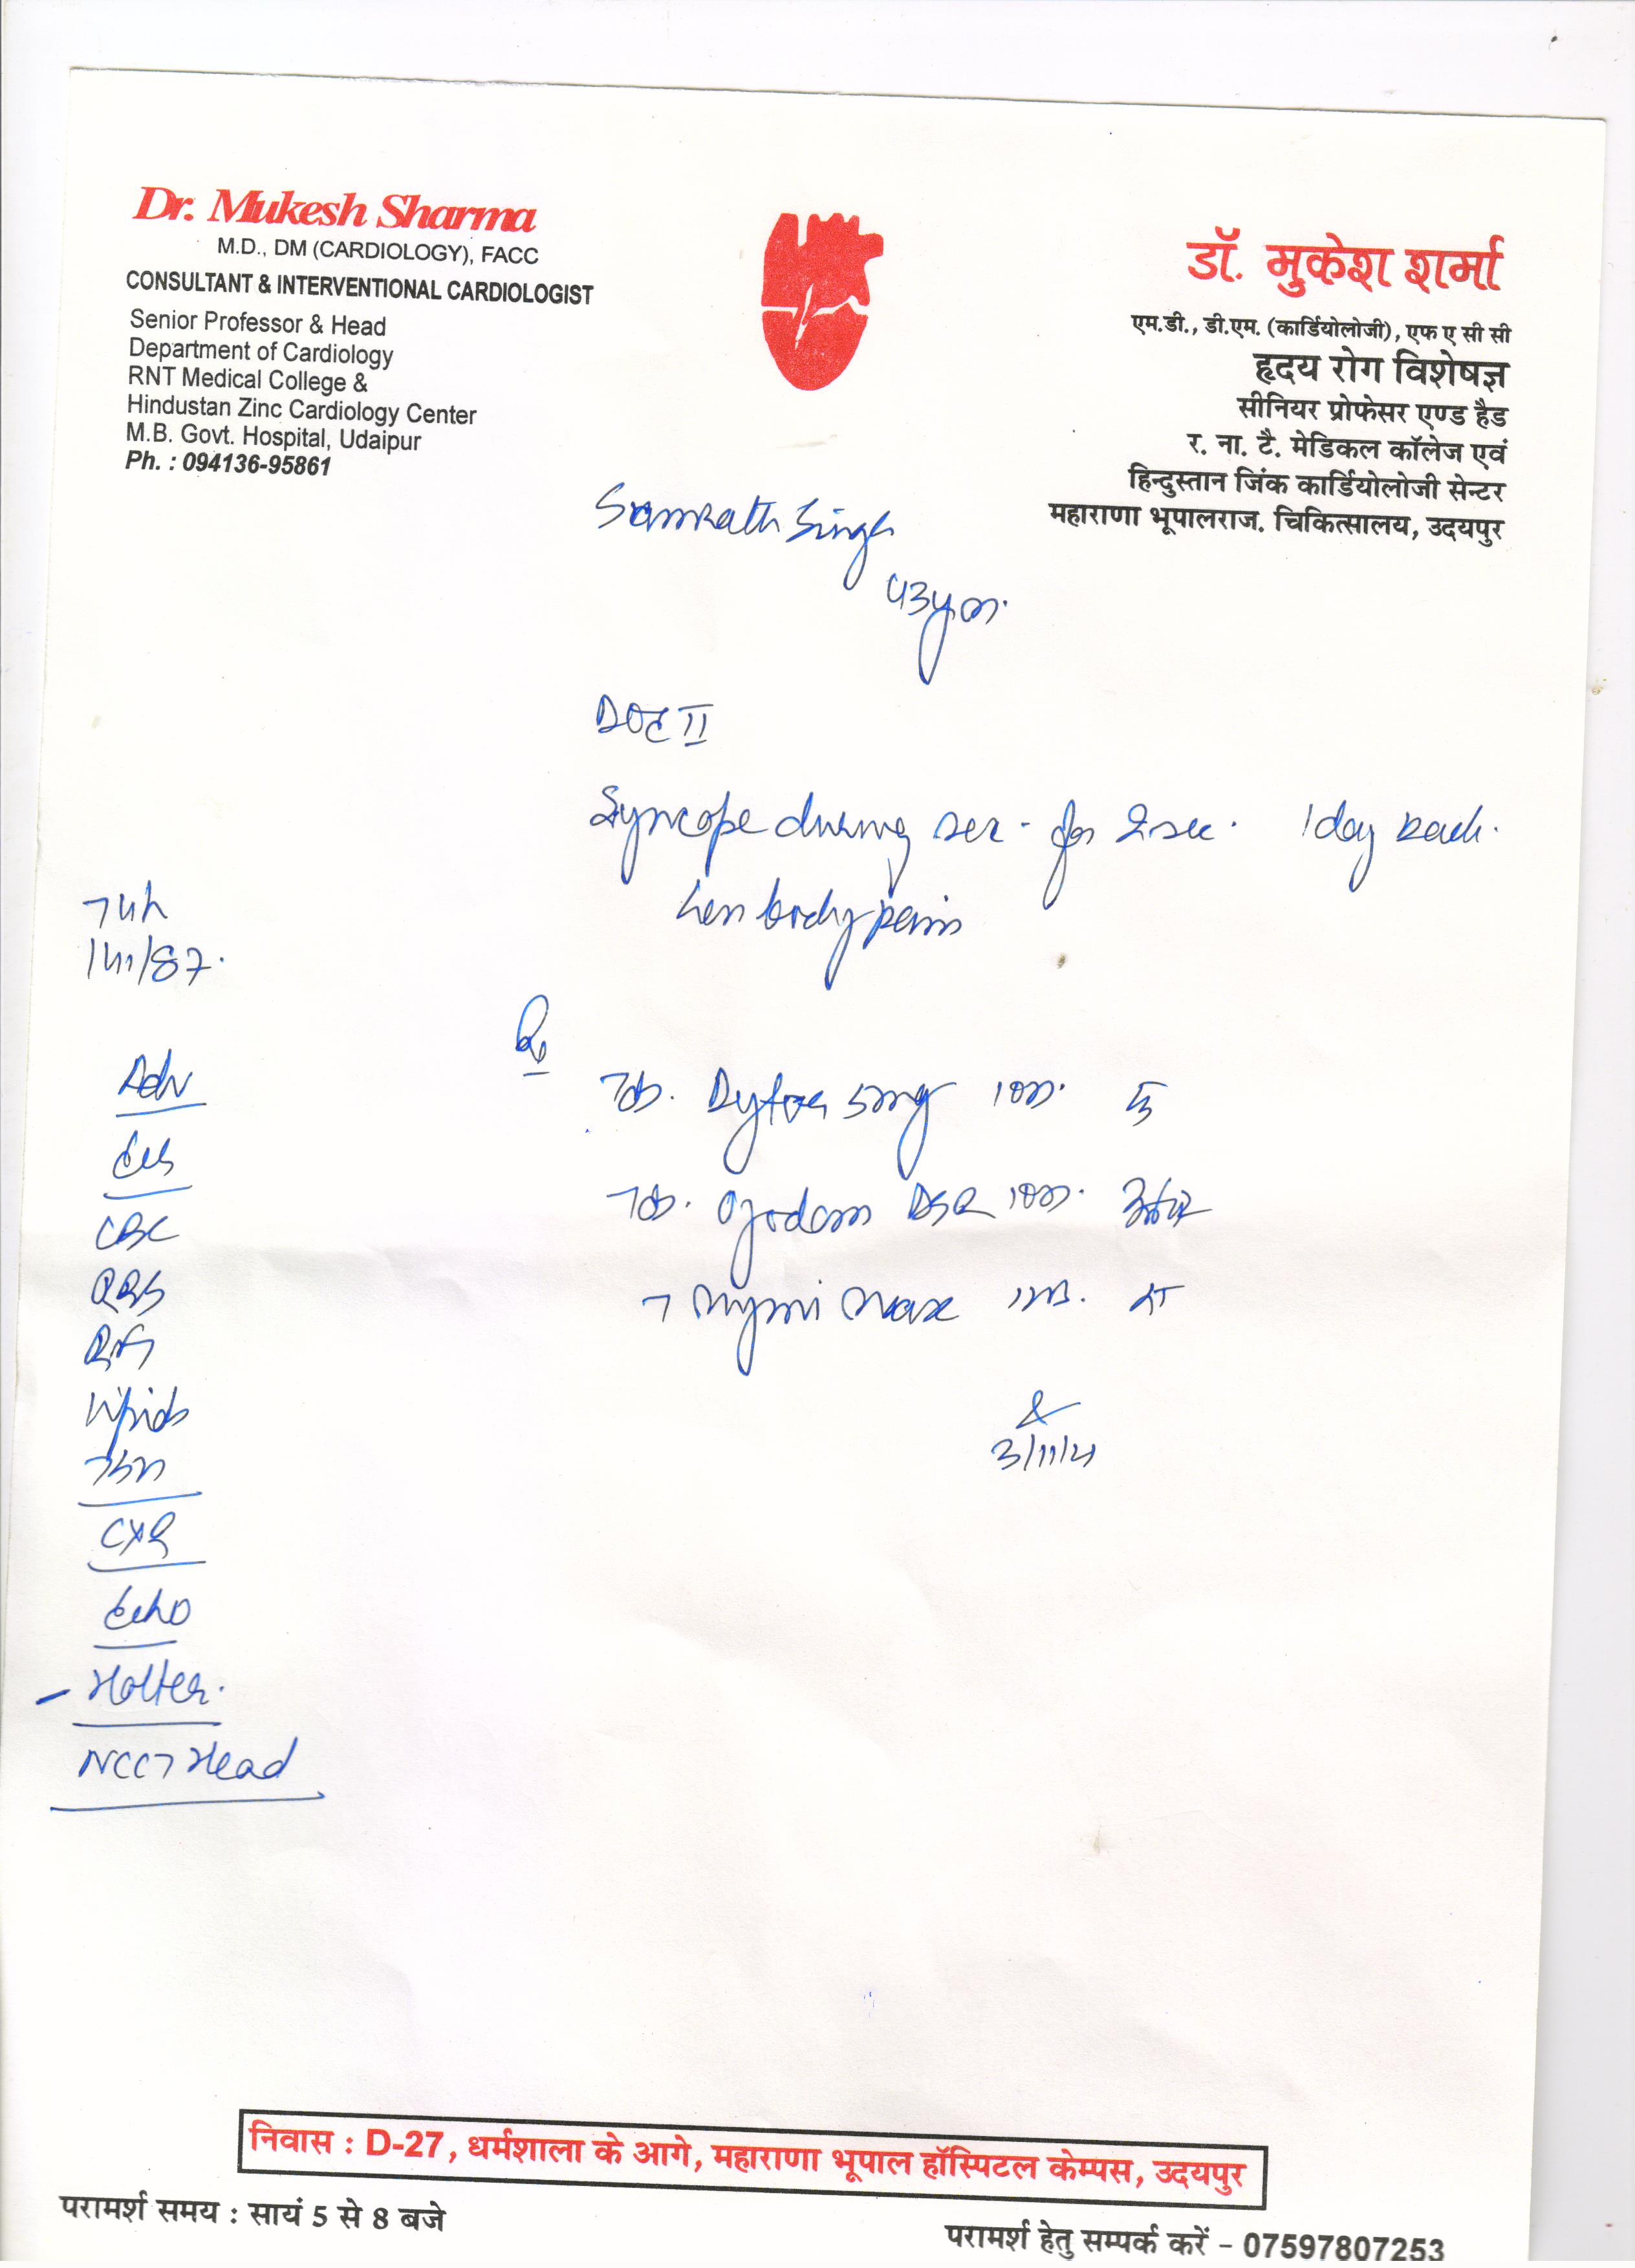 Dr. Mukesh Sharma
M.D., DM (CARDIOLOGY), FACC
CONSULTANT & INTERVENTIONAL CARDIOLOGIST
Senior Professor & Head
Department of Cardiology
RNT Medical College &
Hindustan Zinc Cardiology Center
M.B. Govt. Hospital, Udaipur
Ph. : 094136-95861
डॉ. मुकेश शर्मा
एम.डी., डी.एम. (कार्डियोलोजी), एफ ए सी सी
हृदय रोग विशेषज्ञ
सीनियर प्रोफेसर एण्ड हैड
र. ना. टै. मेडिकल कॉलेज एवं
हिन्दुस्तान जिंक कार्डियोलोजी सेन्टर
महाराणा भूपालराज. चिकित्सालय, उदयपुर
Samrath Singh
DOE II
Syncope during for 2 sec. 1 day back.
body pain
Adv
CBC
RBS
RFT
Lipids
CXR
Echo
- Holter.
NCCT Head
Rx
Tab. Dytor 5mg
Tab. DSR
3/11/21
निवास : D-27, धर्मशाला के आगे, महाराणा भूपाल हॉस्पिटल केम्पस, उदयपुर
परामर्श समय : सायं 5 से 8 बजे
परामर्श हेतु सम्पर्क करें - 07597807253